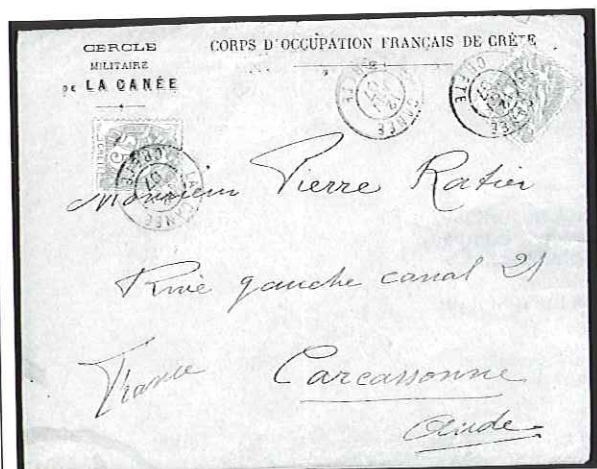 CERCLE
MILITAIRE
DE LA CANÉE
CORPS D'OCCUPATION FRANÇAIS DE CRÈTE
LA CANÉE
CRÈTE
07
Monsieur Pierre Ratier
Rive gauche canal 21
Carcassonne
France
Aude